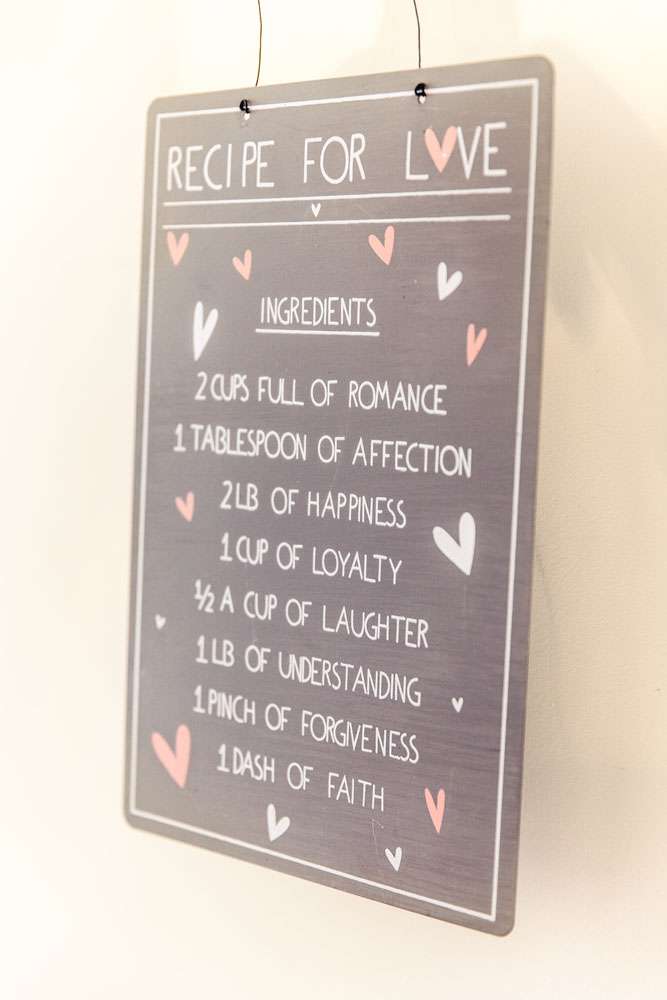 RECIPE FOR LOVE
INGREDIENTS
2 CUPS FULL OF ROMANCE
1 TABLESPOON OF AFFECTION
2 LB OF HAPPINESS
1 CUP OF LOYALTY
½ A CUP OF LAUGHTER
1 LB OF UNDERSTANDING
1 PINCH OF FORGIVENESS
1 DASH OF FAITH